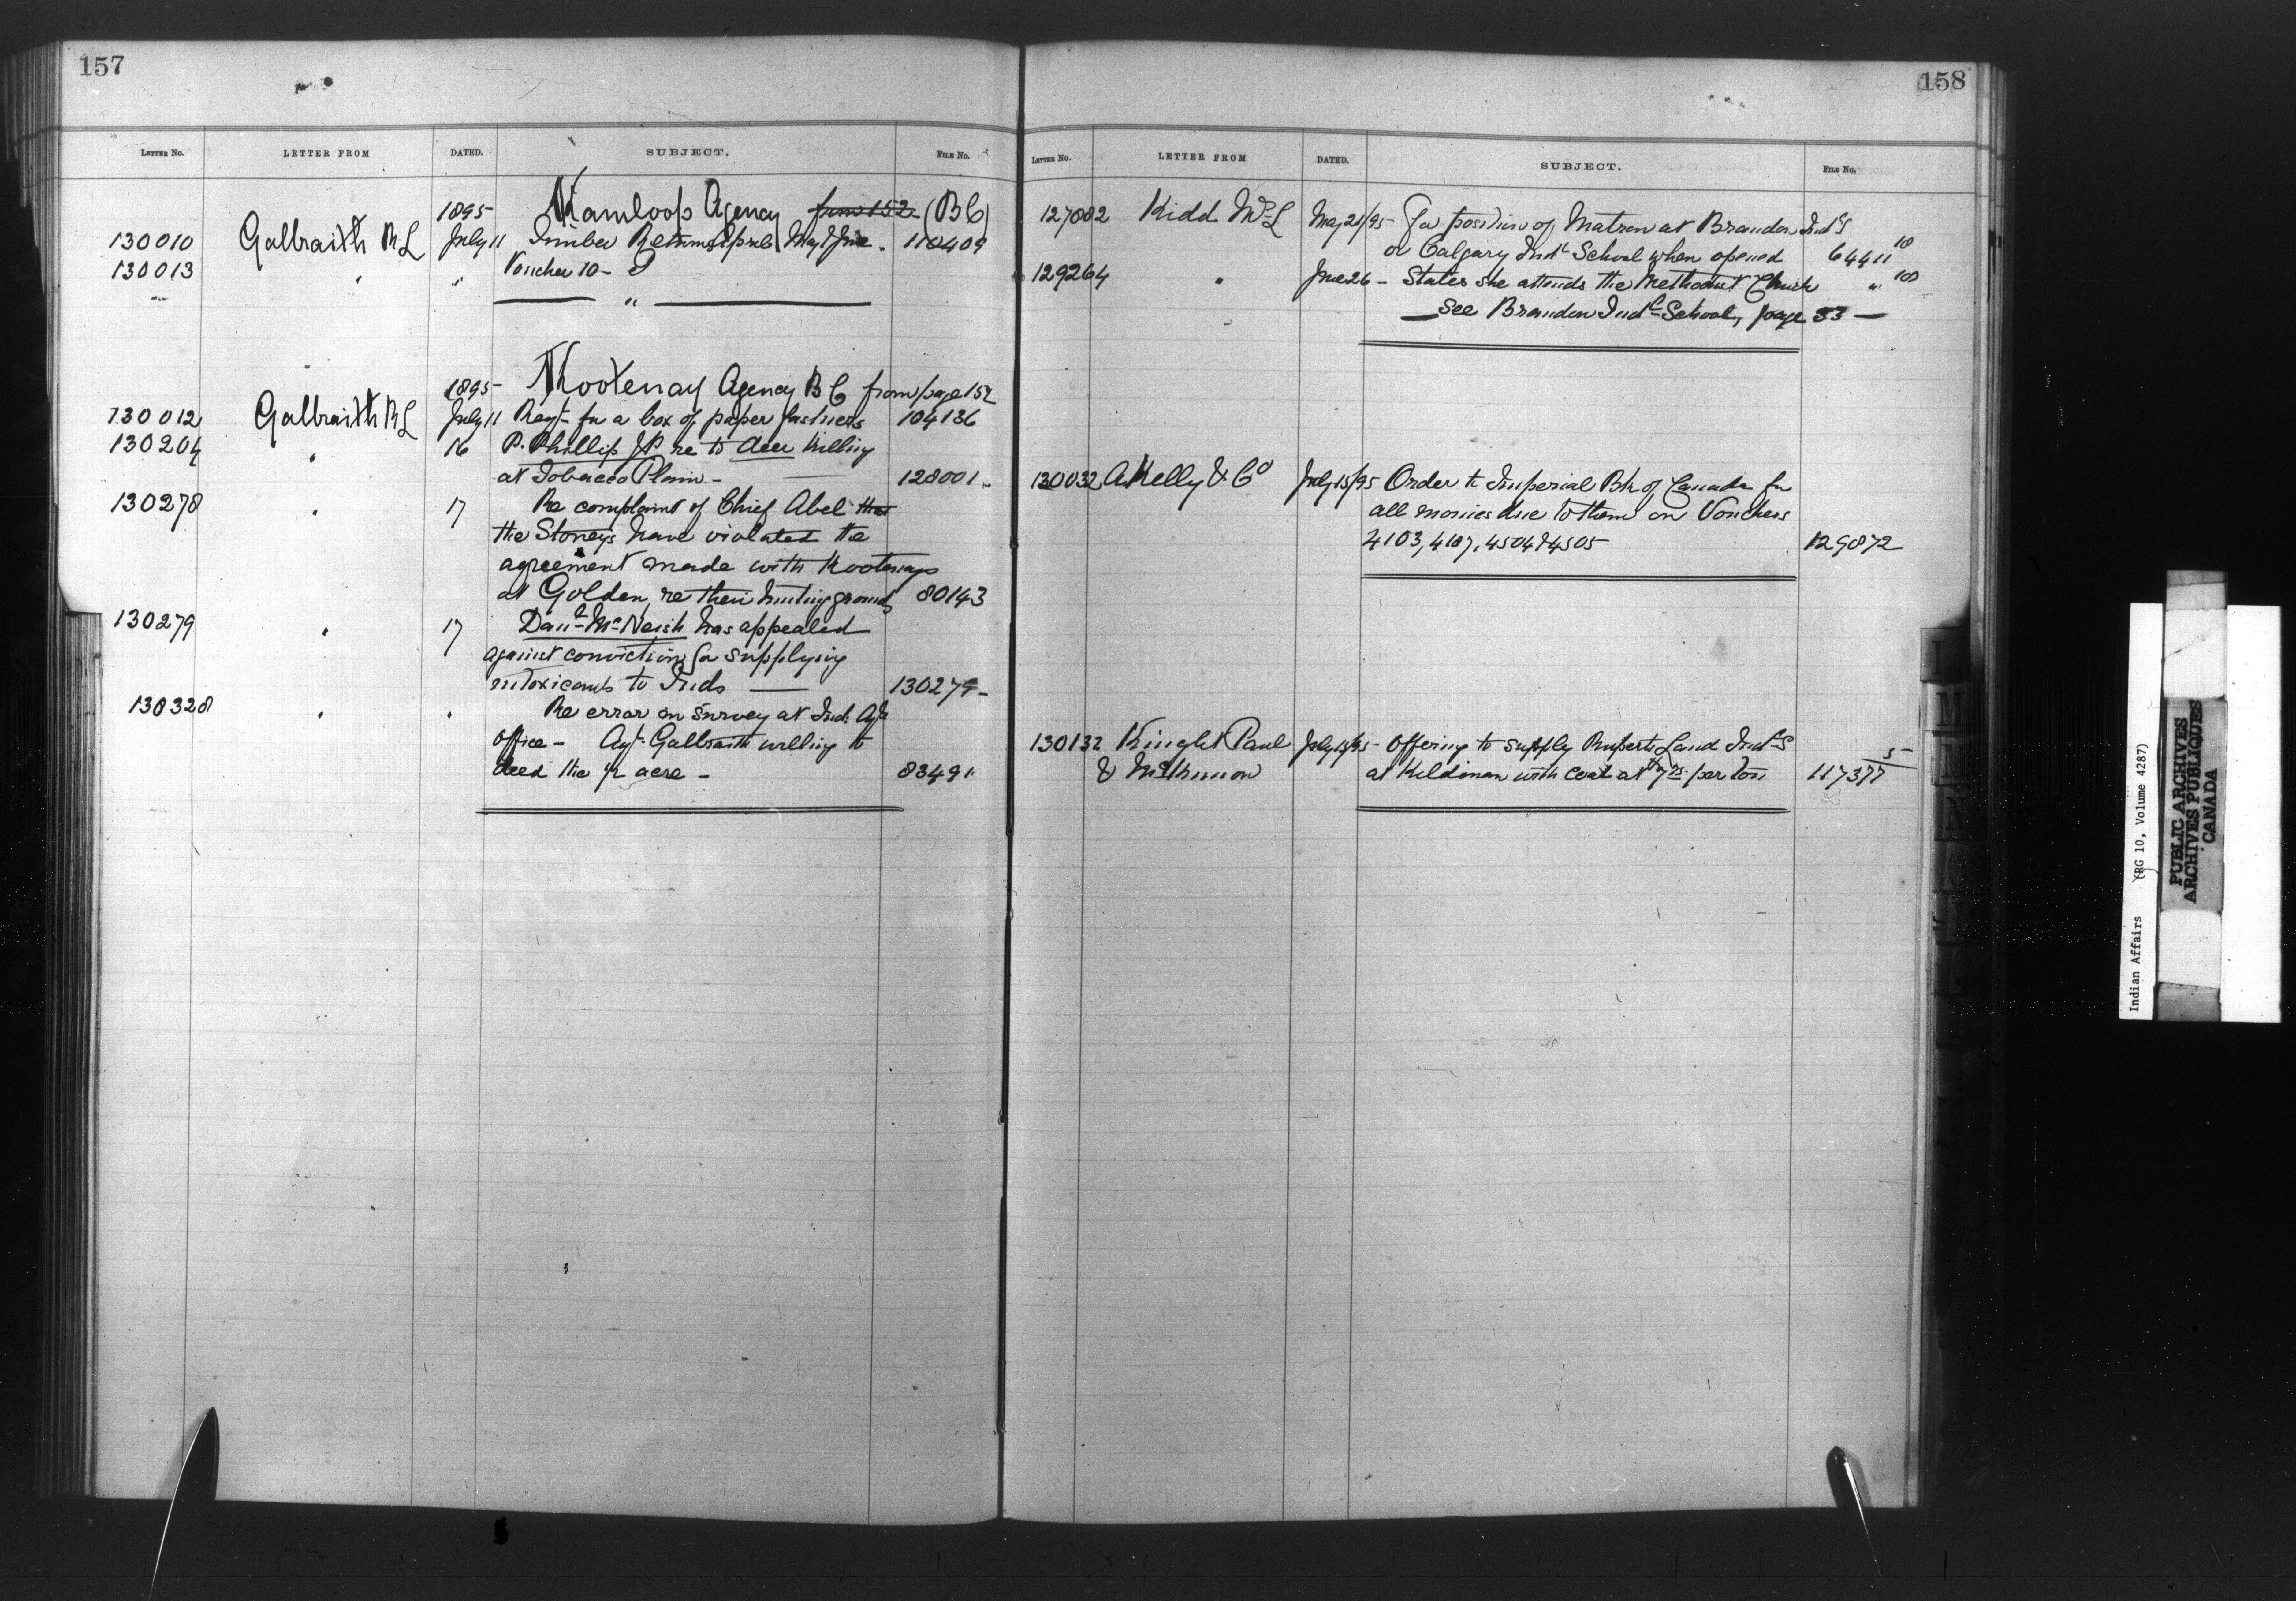 157
LETTER NO. LETTER FROM DATED. SUBJECT. FILE NO.
1895 Kamloops Agency from 152 (BC)
130010 Galbraith R L July 11 Timber Returns April May & June. 110409
130013 " " Voucher 10-
"
1895 Kootenay Agency B C from page 152
130012 Galbraith R L July 11 Reqt. for a box of paper fastners 104136
130204 " 16 P. Phillips JP. re to deer killing
at Tobacco Plain - 128001 -
130278 " 17 Re complaint of Chief Abel that
the Stoneys have violated the
agreement made with Kootenays
at Golden, re their hunting grounds 80143
130279 " 17 Danl. McNeish has appealed
against conviction for supplying
intoxicants to Inds — 130279 -
130328 " " Re error in survey at Ind. Agt
office - Agt. Galbraith willing to
deed the ½ acre - 83491
158
LETTER NO. LETTER FROM DATED. SUBJECT. FILE NO.
127082 Kidd May 21/95 - For position of Matron at Brandon Indl S
or Calgary Indl School when opened 64411 10
129264 " June 26 - States she attends the Methodist Church " 100
— See Brandon Indl School, page 33 —
130032 A Kelly & Co July 15/95 Order to Imperial Bk of Canada for
all monies due to them on Vouchers
4103, 4107, 4504 & 4505 129872
130132 Knight Paul July 15/95 - Offering to supply Ruperts Land Indl S
& McKinnon at Kildonan with coal at per ton 117377 5
Indian Affairs (RG 10, Volume 4287)
PUBLIC ARCHIVES
ARCHIVES PUBLIQUES
CANADA
L
M
N